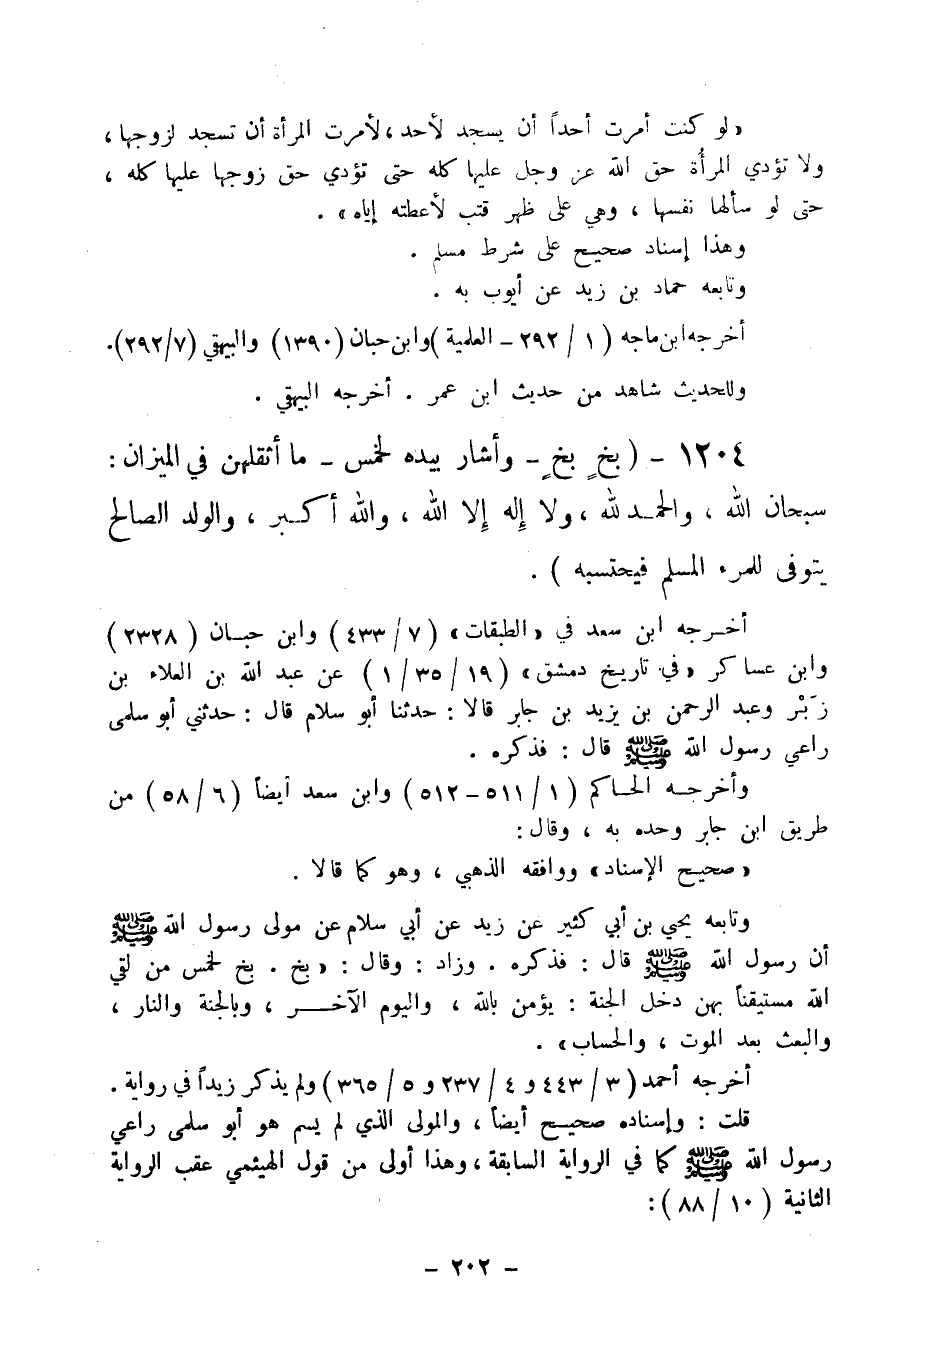 «لو كنت أمرت أحداً أن يسجد لأحد، لأمرت المرأة أن تسجد لزوجها،
ولا تؤدي المرأة حق الله عز وجل عليها كله حتى تؤدي حق زوجها عليها كله ،
حتى لو سألها نفسها ، وهي على ظهر قتب لأعطته إياه» .
وهذا إسناد صحيح على شرط مسلم .
وتابعه حماد بن زيد عن أيوب به .
أخرجه ابن ماجه ( ١ / ٢٩٢ - العلمية ) وابن حبان (١٣٩٠) والبيهقي (٢٩٢/٧).
وللحديث شاهد من حديث ابن عمر . أخرجه البيهقي .
١٢٠٤ - ( بخٍ بخٍ - وأشار بيده لخمس - ما أثقلهن في الميزان :
سبحان الله ، والحمد لله ، ولا إله إلا الله ، والله أكبر ، والولد الصالح
يتوفى للمرء المسلم فيحتسبه ) .
أخرجه ابن سعد في «الطبقات» (٧ /٤٣٣) وابن حبان (٢٣٢٨)
وابن عساكر «في تاريخ دمشق» (١٩ /٣٥ /١) عن عبد الله بن العلاء بن
زَبْر وعبد الرحمن بن يزيد بن جابر قالا : حدثنا أبو سلام قال : حدثني أبو سلمى
راعي رسول الله ﷺ قال : فذكره .
وأخرجه الحاكم (١ /٥١١ - ٥١٢) وابن سعد أيضاً (٦ /٥٨) من
طريق ابن جابر وحده به ، وقال:
«صحيح الإسناد» ووافقه الذهبي ، وهو كما قالا .
وتابعه يحيى بن أبي كثير عن زيد عن أبي سلام عن مولى رسول الله ﷺ
أن رسول الله ﷺ قال : فذكره . وزاد : وقال : «بخ . بخ لخمس من لقي
الله مستيقناً بهن دخل الجنة : يؤمن بالله ، واليوم الآخر ، وبالجنة والنار ،
والبعث بعد الموت ، والحساب» .
أخرجه أحمد (٣ /٤٤٣ و ٤ /٢٣٧ و ٥ /٣٦٥) ولم يذكر زيداً في رواية .
قلت : وإسناده صحيح أيضاً ، والمولى الذي لم يسم هو أبو سلمى راعي
رسول الله ﷺ كما في الرواية السابقة، وهذا أولى من قول الهيثمي عقب الرواية
الثانية ( ١٠ /٨٨ ) :
- ٢٠٢ -